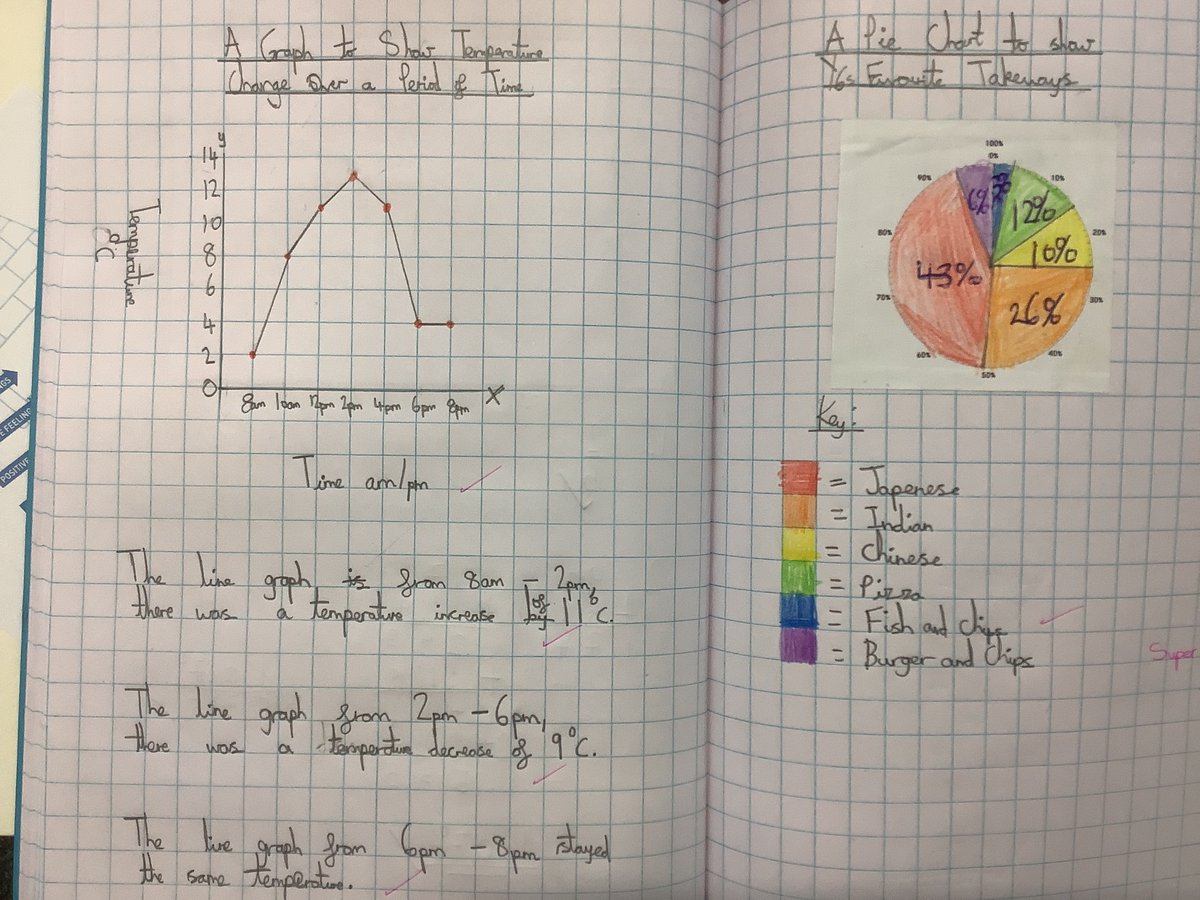 A Graph to Show Temperature
Change Over a Period of Time
y
14
12
10
8
6
4
2
0
Temperature
°C
8am 10am 12pm 2pm 4pm 6pm 8pm X
Time am/pm
The line graph is from 8am - 2pm,
there was a temperature increase by of 11°C.
The line graph from 2pm - 6pm,
there was a temperture decrease of 9°C.
The line graph from 6pm - 8pm stayed
the same temperature.
A Pie Chart to show
Y6s Favourite Takeways
100%
0%
10%
20%
30%
40%
50%
60%
70%
80%
90%
6%
12%
10%
26%
43%
Key:
= Japenese
= Indian
= Chinese
= Pizza
= Fish and chips
= Burger and Chips
Super
GS
E FEELING
POSITIVE